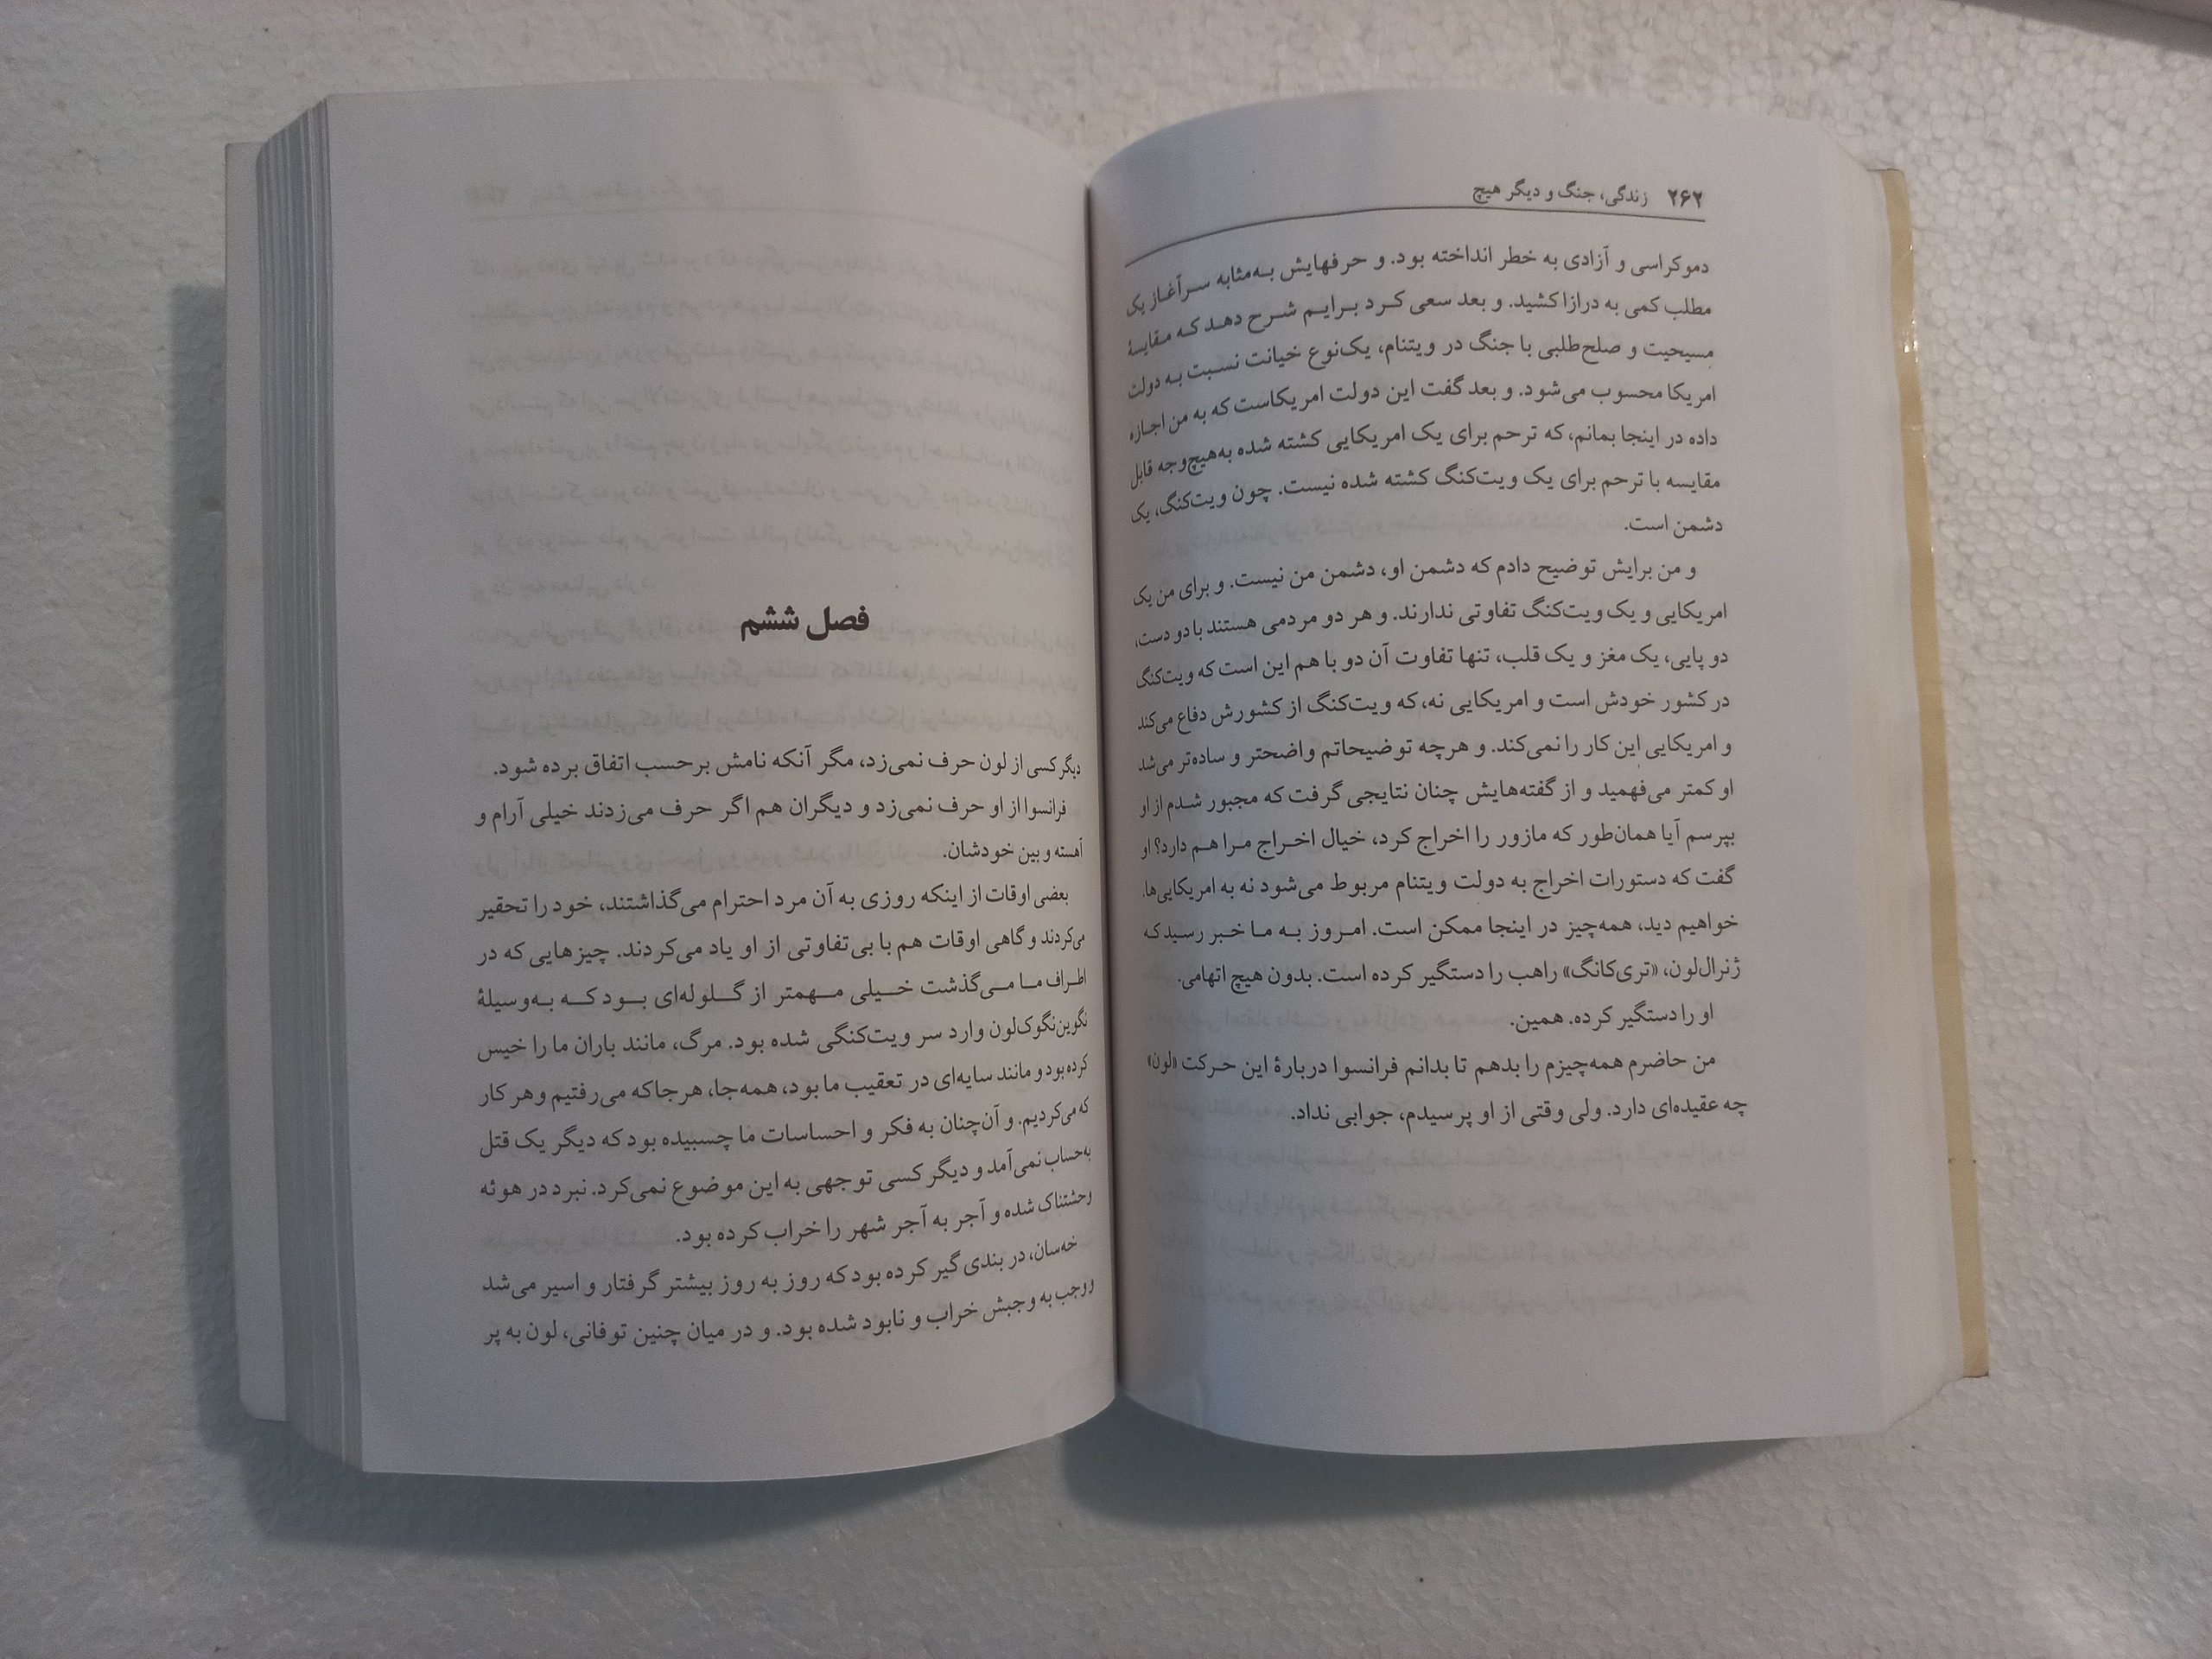 ۲۶۲ زندگی، جنگ و دیگر هیچ
دموکراسی و آزادی به خطر انداخته بود. و حرفهایش به‌مثابه سرآغاز یک
مطلب کمی به درازا کشید. و بعد سعی کرد برایم شرح دهد که مقایسهٔ
مسیحیت و صلح‌طلبی با جنگ در ویتنام، یک‌نوع خیانت نسبت به دولت
امریکا محسوب می‌شود. و بعد گفت این دولت امریکاست که به من اجازه
داده در اینجا بمانم، که ترحم برای یک امریکایی کشته شده به‌هیچ‌وجه قابل
مقایسه با ترحم برای یک ویت‌کنگ کشته شده نیست. چون ویت‌کنگ، یک
دشمن است.
و من برایش توضیح دادم که دشمن او، دشمن من نیست. و برای من یک
امریکایی و یک ویت‌کنگ تفاوتی ندارند. و هر دو مردمی هستند با دو دست،
دو پایی، یک مغز و یک قلب، تنها تفاوت آن دو با هم این است که ویت‌کنگ
در کشور خودش است و امریکایی نه، که ویت‌کنگ از کشورش دفاع می‌کند
و امریکایی این کار را نمی‌کند. و هرچه توضیحاتم واضحتر و ساده‌تر می‌شد
او کمتر می‌فهمید و از گفته‌هایش چنان نتایجی گرفت که مجبور شدم از او
بپرسم آیا همان‌طور که مازور را اخراج کرد، خیال اخراج مرا هم دارد؟ او
گفت که دستورات اخراج به دولت ویتنام مربوط می‌شود نه به امریکایی‌ها.
خواهیم دید، همه‌چیز در اینجا ممکن است. امروز به ما خبر رسید که
ژنرال‌لون، «تری‌کانگ» راهب را دستگیر کرده است. بدون هیچ اتهامی.
او را دستگیر کرده. همین.
من حاضرم همه‌چیزم را بدهم تا بدانم فرانسوا دربارهٔ این حرکت «لون»
چه عقیده‌ای دارد. ولی وقتی از او پرسیدم، جوابی نداد.
فصل ششم
دیگر کسی از لون حرف نمی‌زد، مگر آنکه نامش برحسب اتفاق برده شود.
فرانسوا از او حرف نمی‌زد و دیگران هم اگر حرف می‌زدند خیلی آرام و
آهسته و بین خودشان.
بعضی اوقات از اینکه روزی به آن مرد احترام می‌گذاشتند، خود را تحقیر
می‌کردند و گاهی اوقات هم با بی‌تفاوتی از او یاد می‌کردند. چیزهایی که در
اطراف ما می‌گذشت خیلی مهمتر از گلوله‌ای بود که به‌وسیلهٔ
نگوین‌نگوک‌لون وارد سر ویت‌کنگی شده بود. مرگ، مانند باران ما را خیس
کرده بود و مانند سایه‌ای در تعقیب ما بود، همه‌جا، هرجا که می‌رفتیم و هر کار
که می‌کردیم. و آن‌چنان به فکر و احساسات ما چسبیده بود که دیگر یک قتل
به‌حساب نمی‌آمد و دیگر کسی توجهی به این موضوع نمی‌کرد. نبرد در هوئه
وحشتناک شده و آجر به آجر شهر را خراب کرده بود.
خه‌سان، در بندی گیر کرده بود که روز به روز بیشتر گرفتار و اسیر می‌شد
و وجب به وجبش خراب و نابود شده بود. و در میان چنین توفانی، لون به پر